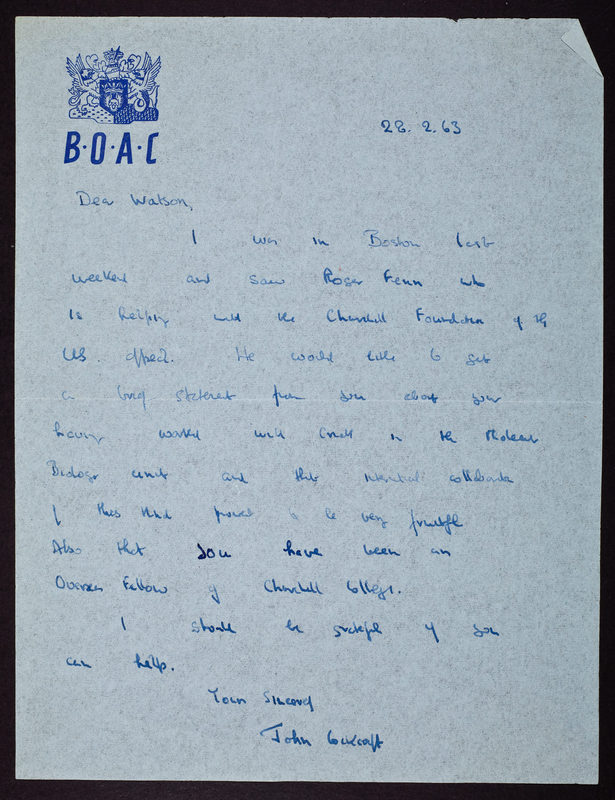 B·O·A·C
28. 2. 63
Dear Watson,
I was in Boston last
weekend and saw Roger Fenn who
is helping with the Churchill Foundation of the
US. appeal. He would like to get
a brief statement from you about your
having worked with Crick in the Molecular
Biology unit and that international collaboration
of this kind proved to be very fruitful.
Also that you have been an
Overseas Fellow of Churchill College.
I should be grateful if you
can help.
Yours Sincerely
John Cockcroft